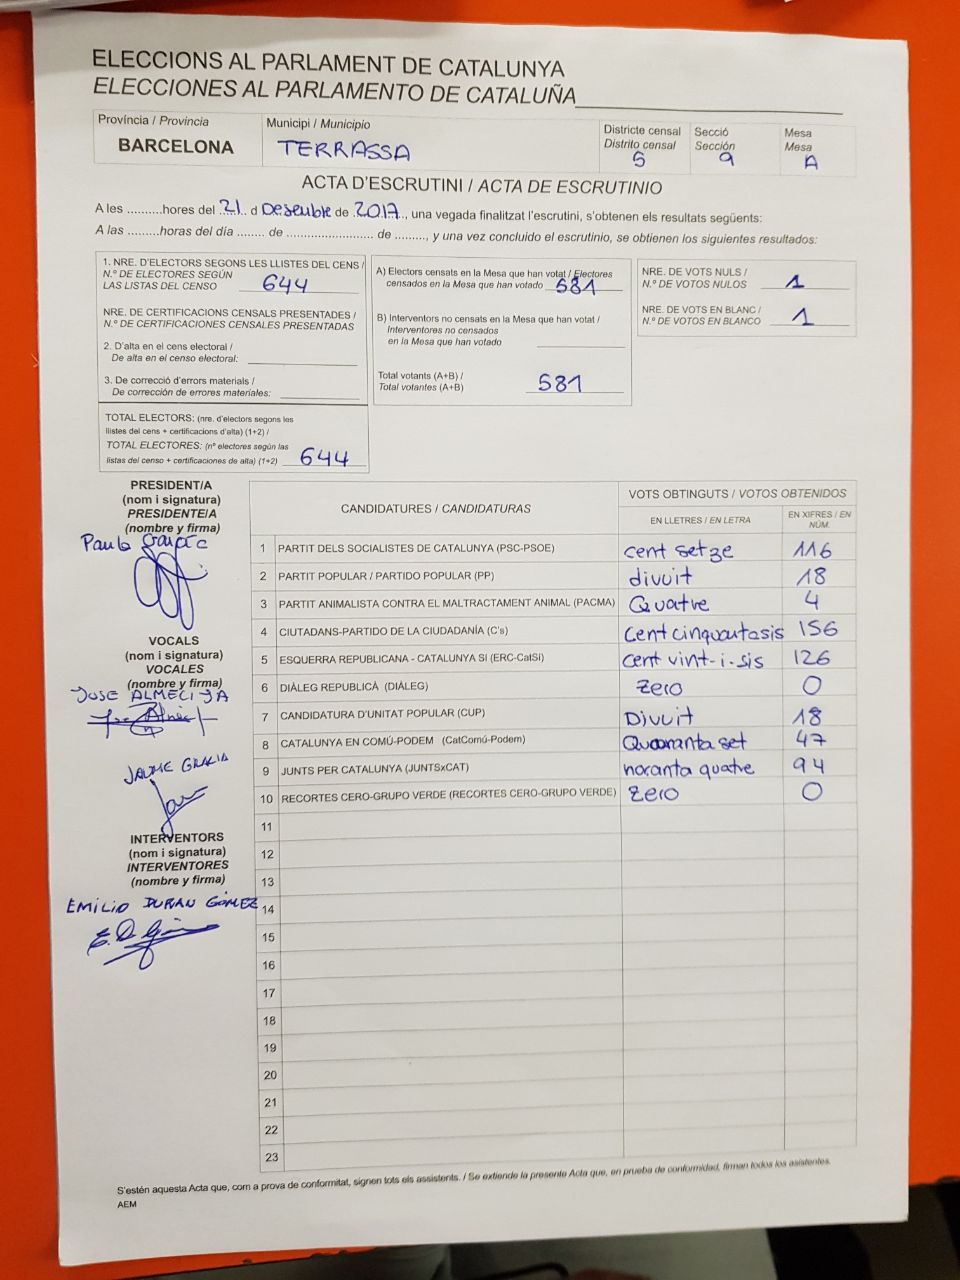 ELECCIONS AL PARLAMENT DE CATALUNYA
ELECCIONES AL PARLAMENTO DE CATALUÑA
Província / Provincia
BARCELONA
Municipi / Municipio
TERRASSA
Districte censal
Distrito censal
5
Secció
Sección
9
Mesa
Mesa
A
ACTA D'ESCRUTINI / ACTA DE ESCRUTINIO
A les ..........hores del .21. d Desembre de .2017., una vegada finalitzat l'escrutini, s'obtenen els resultats següents:
A las .........horas del día ........ de ........................ de ........., y una vez concluido el escrutinio, se obtienen los siguientes resultados:
1. NRE. D'ELECTORS SEGONS LES LLISTES DEL CENS /
N.º DE ELECTORES SEGÚN
LAS LISTAS DEL CENSO 644
NRE. DE CERTIFICACIONS CENSALS PRESENTADES /
N.º DE CERTIFICACIONES CENSALES PRESENTADAS
2. D'alta en el cens electoral /
De alta en el censo electoral:
3. De correcció d'errors materials /
De corrección de errores materiales:
TOTAL ELECTORS: (nre. d'electors segons les
llistes del cens + certificacions d'alta) (1+2) /
TOTAL ELECTORES: (nº electores según las
listas del censo + certificaciones de alta) (1+2) 644
A) Electors censats en la Mesa que han votat / Electores
censados en la Mesa que han votado 581
B) Interventors no censats en la Mesa que han votat /
Interventores no censados
en la Mesa que han votado
Total votants (A+B) /
Total votantes (A+B) 581
NRE. DE VOTS NULS /
N.º DE VOTOS NULOS 1
NRE. DE VOTS EN BLANC /
N.º DE VOTOS EN BLANCO 1
PRESIDENT/A
(nom i signatura)
PRESIDENTE/A
(nombre y firma)
VOCALS
(nom i signatura)
VOCALES
(nombre y firma)
JOSE ALMECIJA
JAUME GRACIA
INTERVENTORS
(nom i signatura)
INTERVENTORES
(nombre y firma)
EMILIO DURAN GOMEZ
CANDIDATURES / CANDIDATURAS
VOTS OBTINGUTS / VOTOS OBTENIDOS
EN LLETRES / EN LETRA
EN XIFRES / EN
NÚM.
1 PARTIT DELS SOCIALISTES DE CATALUNYA (PSC-PSOE) cent setze 116
2 PARTIT POPULAR / PARTIDO POPULAR (PP) divuit 18
3 PARTIT ANIMALISTA CONTRA EL MALTRACTAMENT ANIMAL (PACMA) Quatre 4
4 CIUTADANS-PARTIDO DE LA CIUDADANÍA (C's) Cent cinquantasis 156
5 ESQUERRA REPUBLICANA - CATALUNYA SI (ERC-CatSí) cent vint-i-sis 126
6 DIÀLEG REPUBLICÀ (DIÀLEG) zero 0
7 CANDIDATURA D'UNITAT POPULAR (CUP) Divuit 18
8 CATALUNYA EN COMÚ-PODEM (CatComú-Podem) Quaranta set 47
9 JUNTS PER CATALUNYA (JUNTSxCAT) noranta quatre 94
10 RECORTES CERO-GRUPO VERDE (RECORTES CERO-GRUPO VERDE) zero 0
11
12
13
14
15
16
17
18
19
20
21
22
23
S'estén aquesta Acta que, com a prova de conformitat, signen tots els assistents. / Se extiende la presente Acta que, en prueba de conformidad, firman todos los asistentes.
AEM